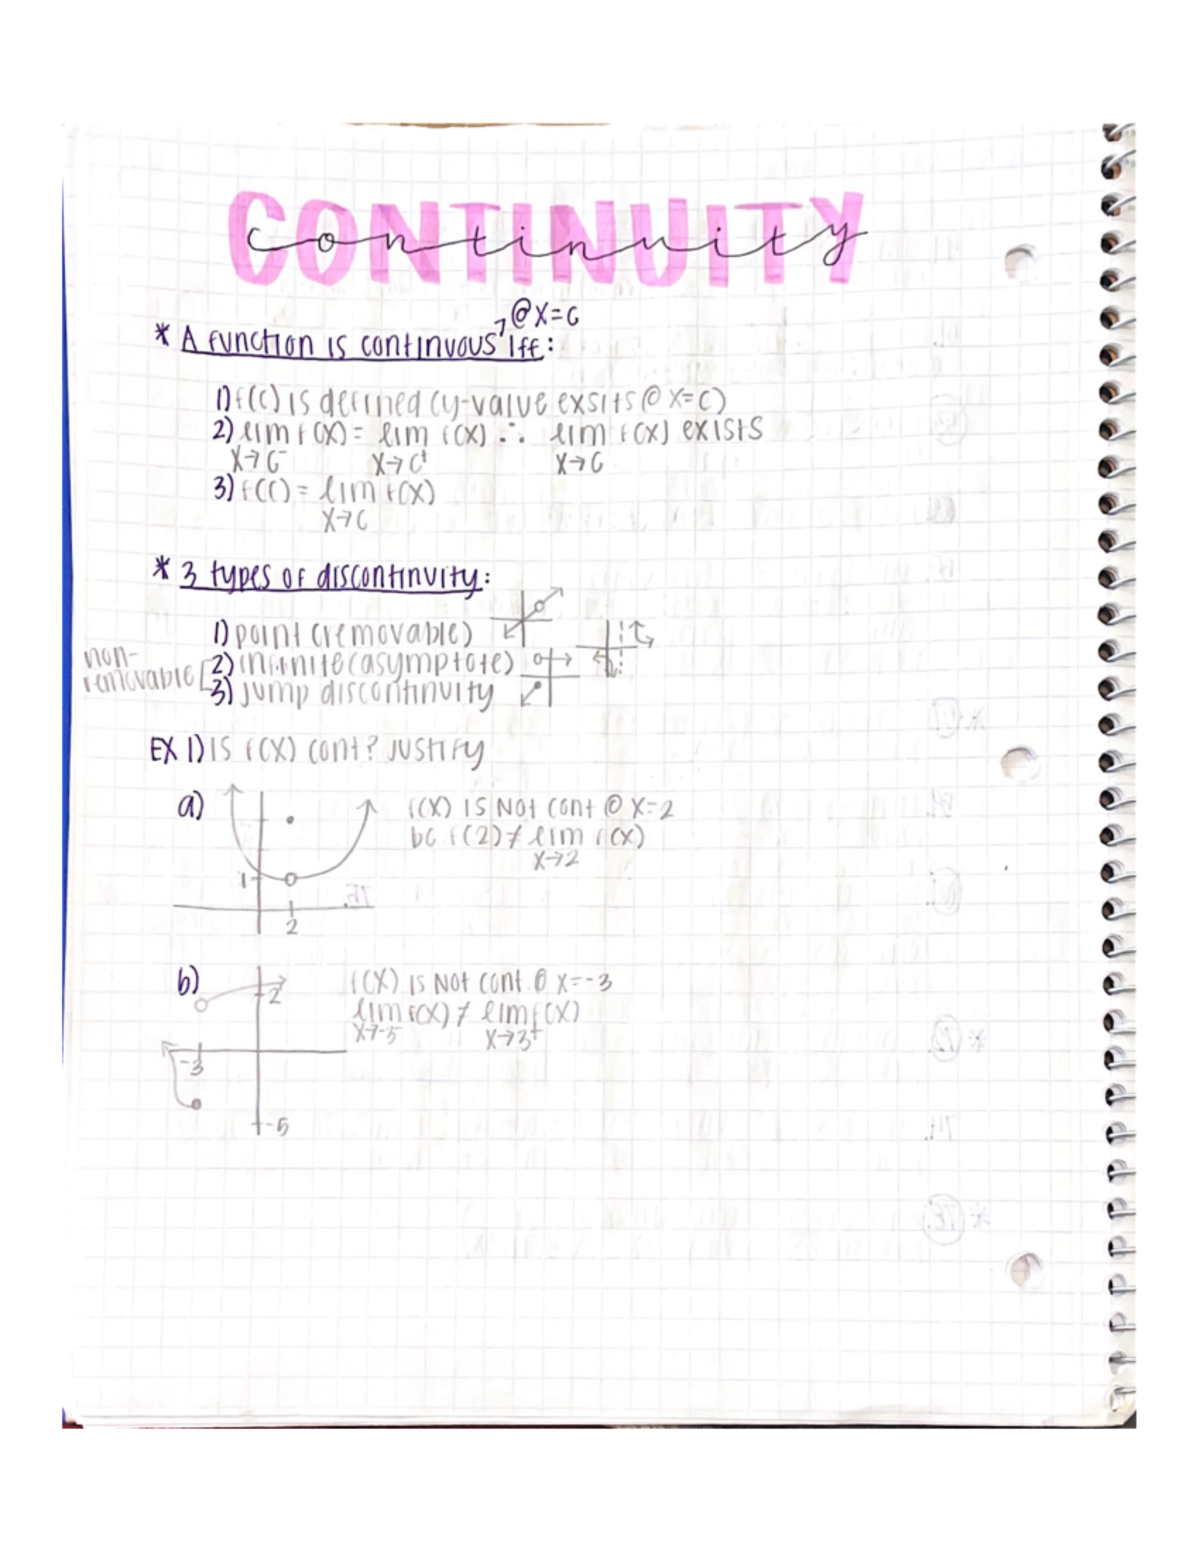 CONTINUITY
continuity
@ x=c
* A function is continuous iff:
1) f(c) is defined (y-value exsits @ x=c)
2) lim f(x) = lim f(x) ∴ lim f(x) exists
x→c⁻ x→c⁺ x→c
3) f(c) = lim f(x)
x→c
* 3 types of discontinuity:
1) point (removable)
non-removable
2) infinite (asymptote)
3) jump discontinuity
EX 1) Is f(x) cont? Justify
a)
f(x) is not cont @ x=2
bc f(2) ≠ lim f(x)
x→2
1
2
b)
f(x) is not cont. @ x=-3
2
lim f(x) ≠ lim f(x)
x→-5 x→3⁺
-3
-5